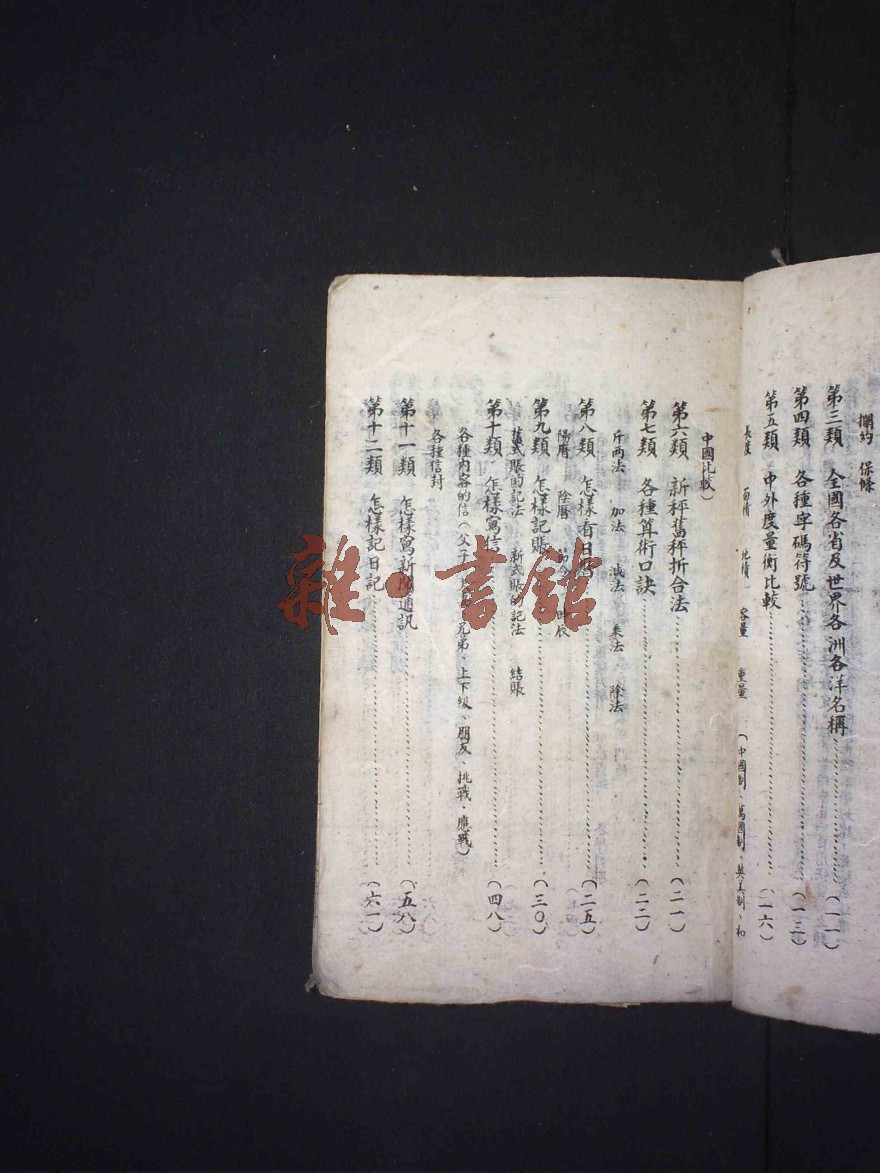 摺約 保條
第三類 全國各省及世界各洲各洋名稱 (一一)
第四類 各種字碼符號 (一三)
第五類 中外度量衡比較 (一六)
長度 面積 地積 容量 重量 (中國制、萬國制、英美制、和
中國比較)
第六類 新秤舊秤折合法 (二一)
第七類 各種算術口訣 (二二)
斤兩法 加法 減法 乘法 除法
第八類 怎樣看日曆 (二五)
陽曆 陰曆 節令 時辰
第九類 怎樣記賬 (三〇)
舊式賬的記法 新式賬的記法 結賬
第十類 怎樣寫信 (四八)
各種內容的信(父子 兄弟、上下級、朋友、挑戰、應戰)
各種信封
第十一類 怎樣寫新聞通訊 (五八)
第十二類 怎樣記日記 (六一)
雜·書館